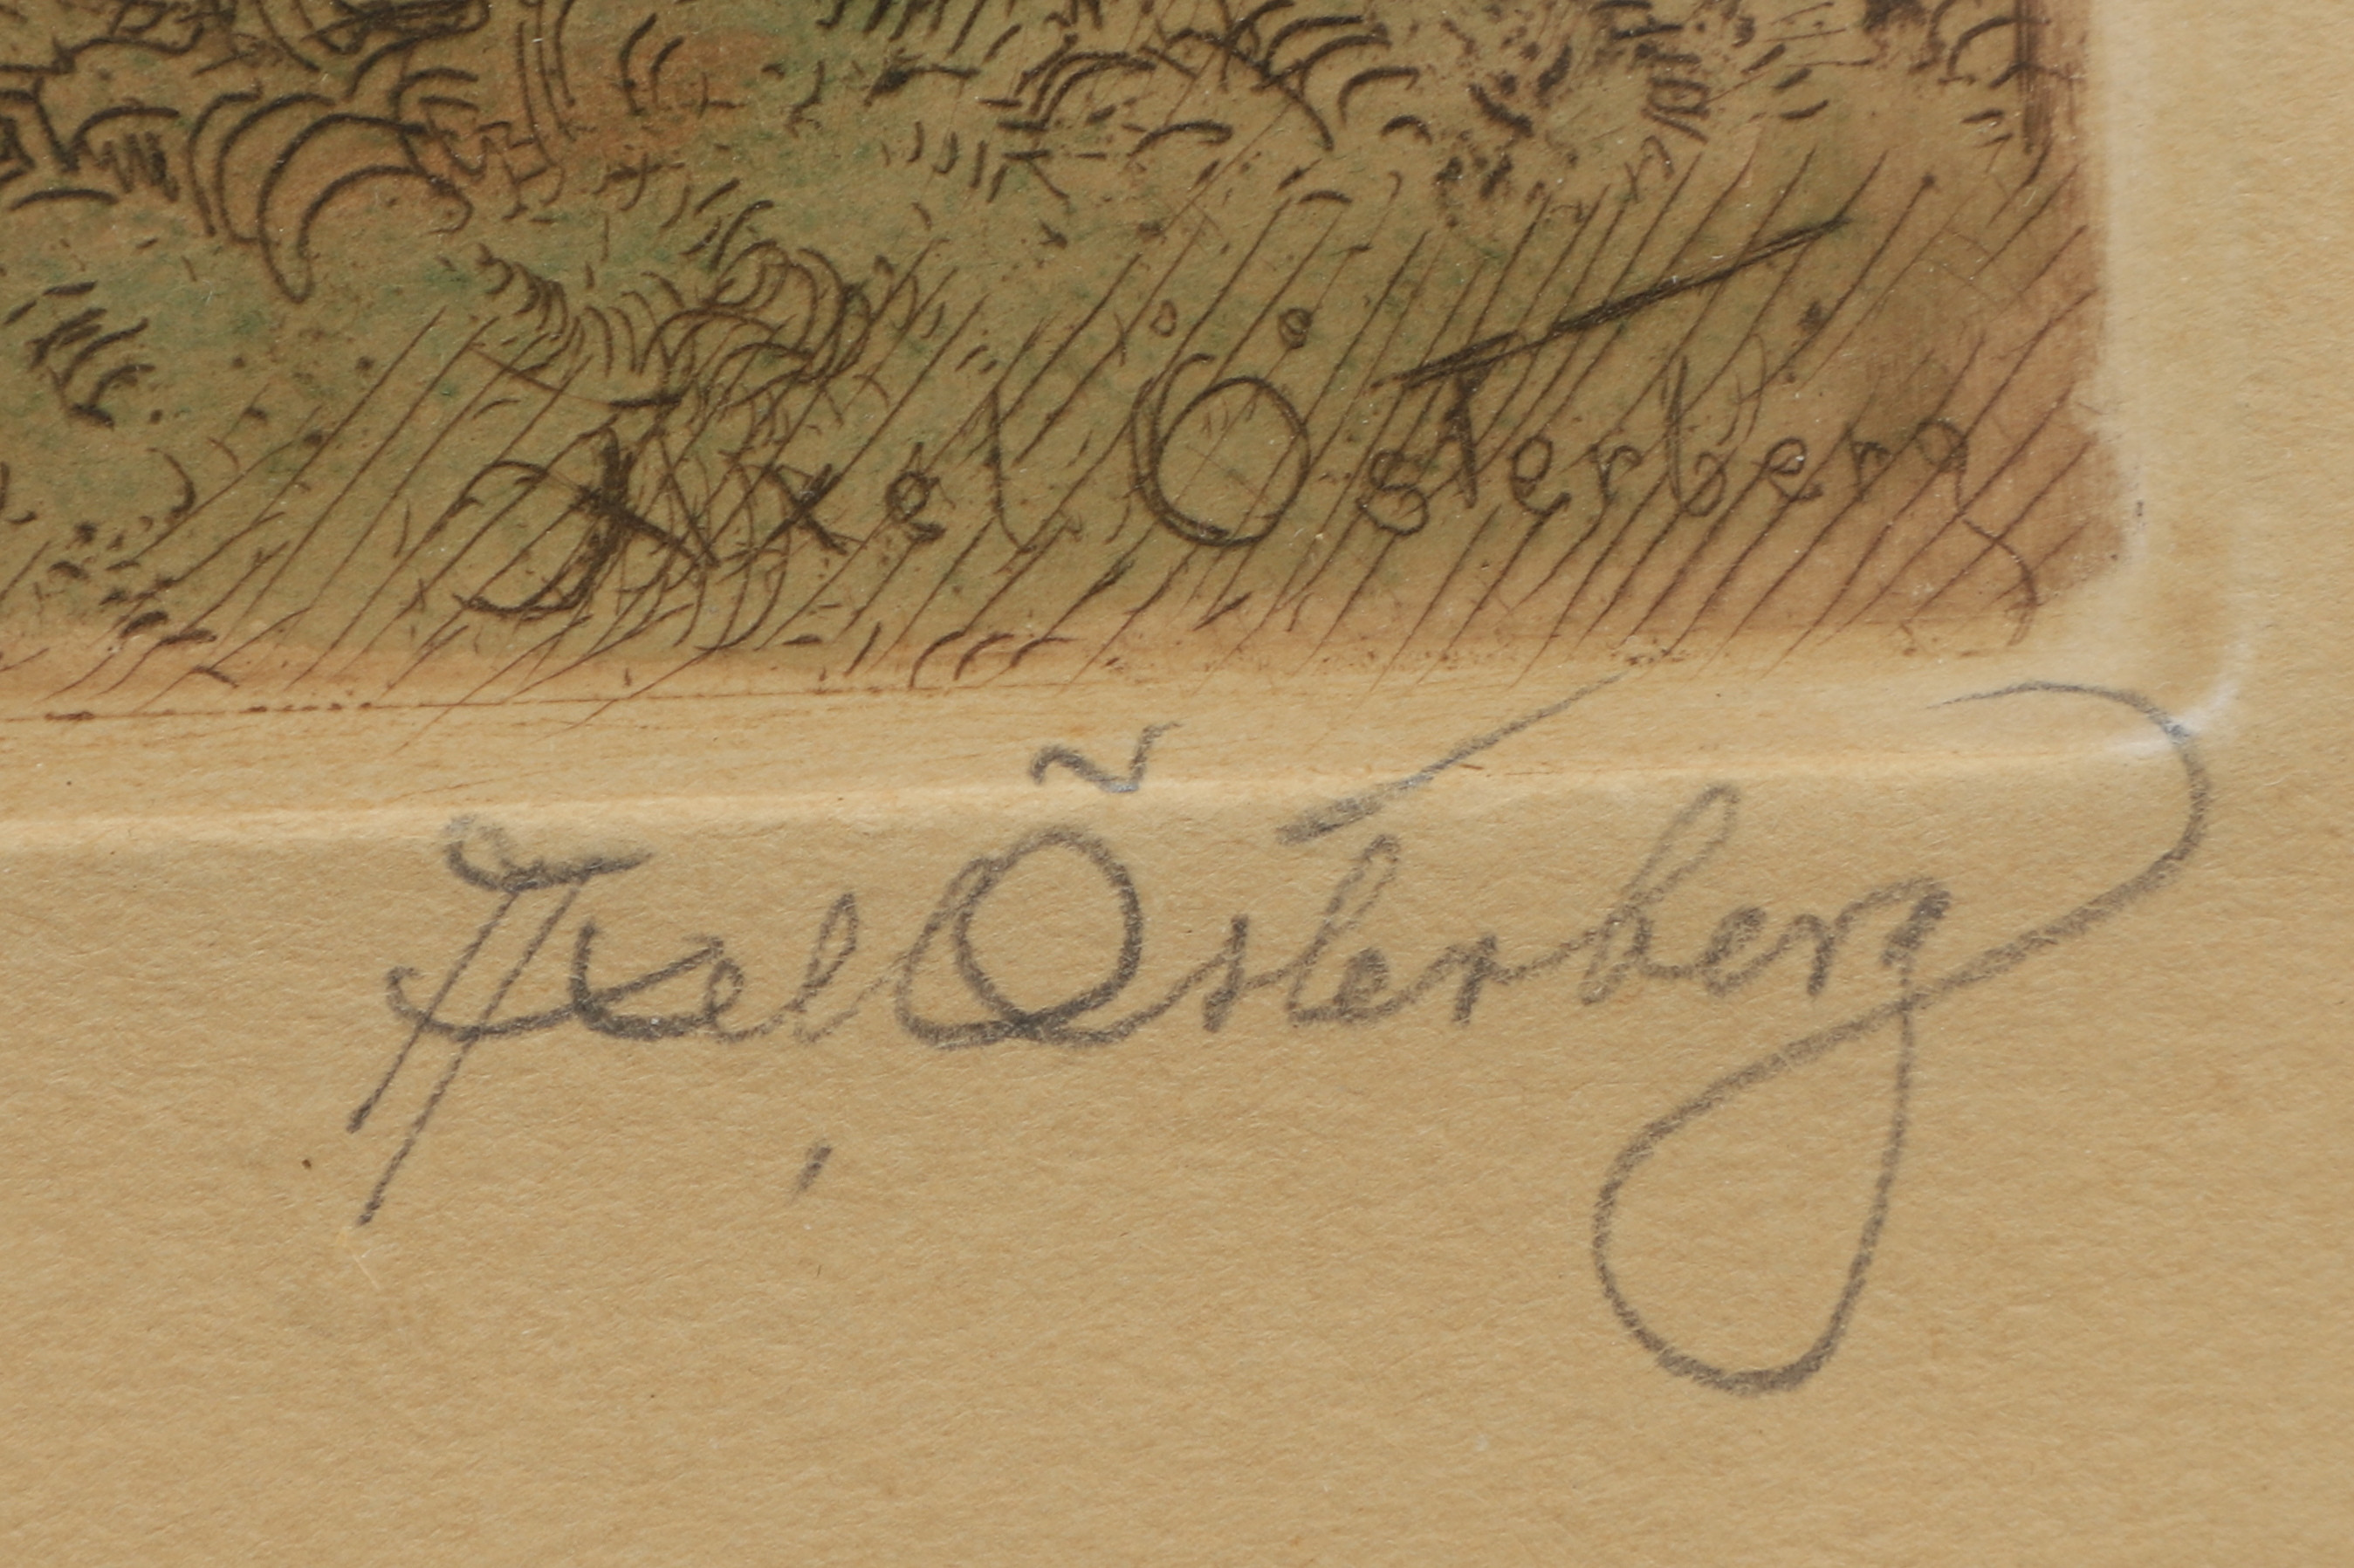 Axel Österberg
Axel Österberg